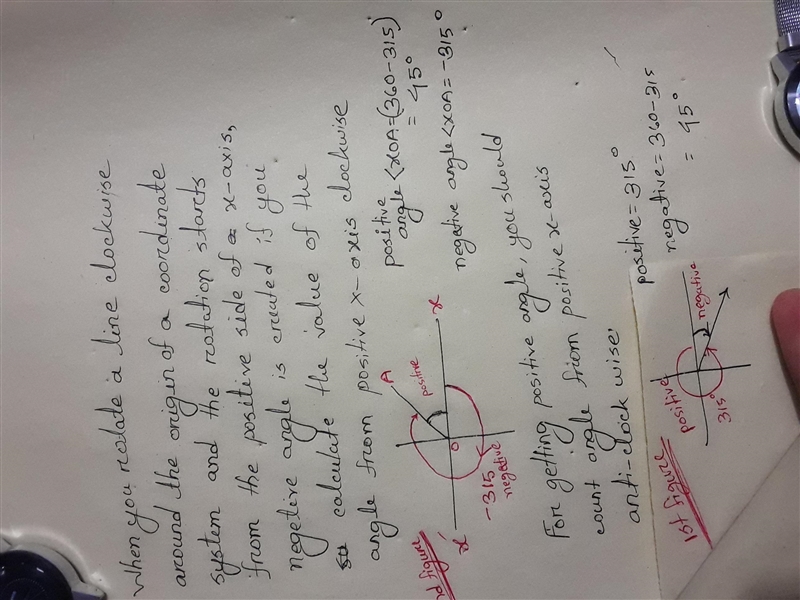 When you rotate a line clockwise
around the origin of a coordinate
system and the rotation starts
from the positive side of x-axis,
negetive angle is created if you
calculate the value of the
angle from positive x-axis clockwise
positive
angle <XOA=(360-315)
= 45°
negative angle <XOA = -315°
A
positive
X
O
X'
-315
negative
nd figure
For getting positive angle, you should
count angle from positive x-axis
anti-clock wise.
positive = 315°
negative = 360-315
= 45°
1st figure
positive
315°
negative